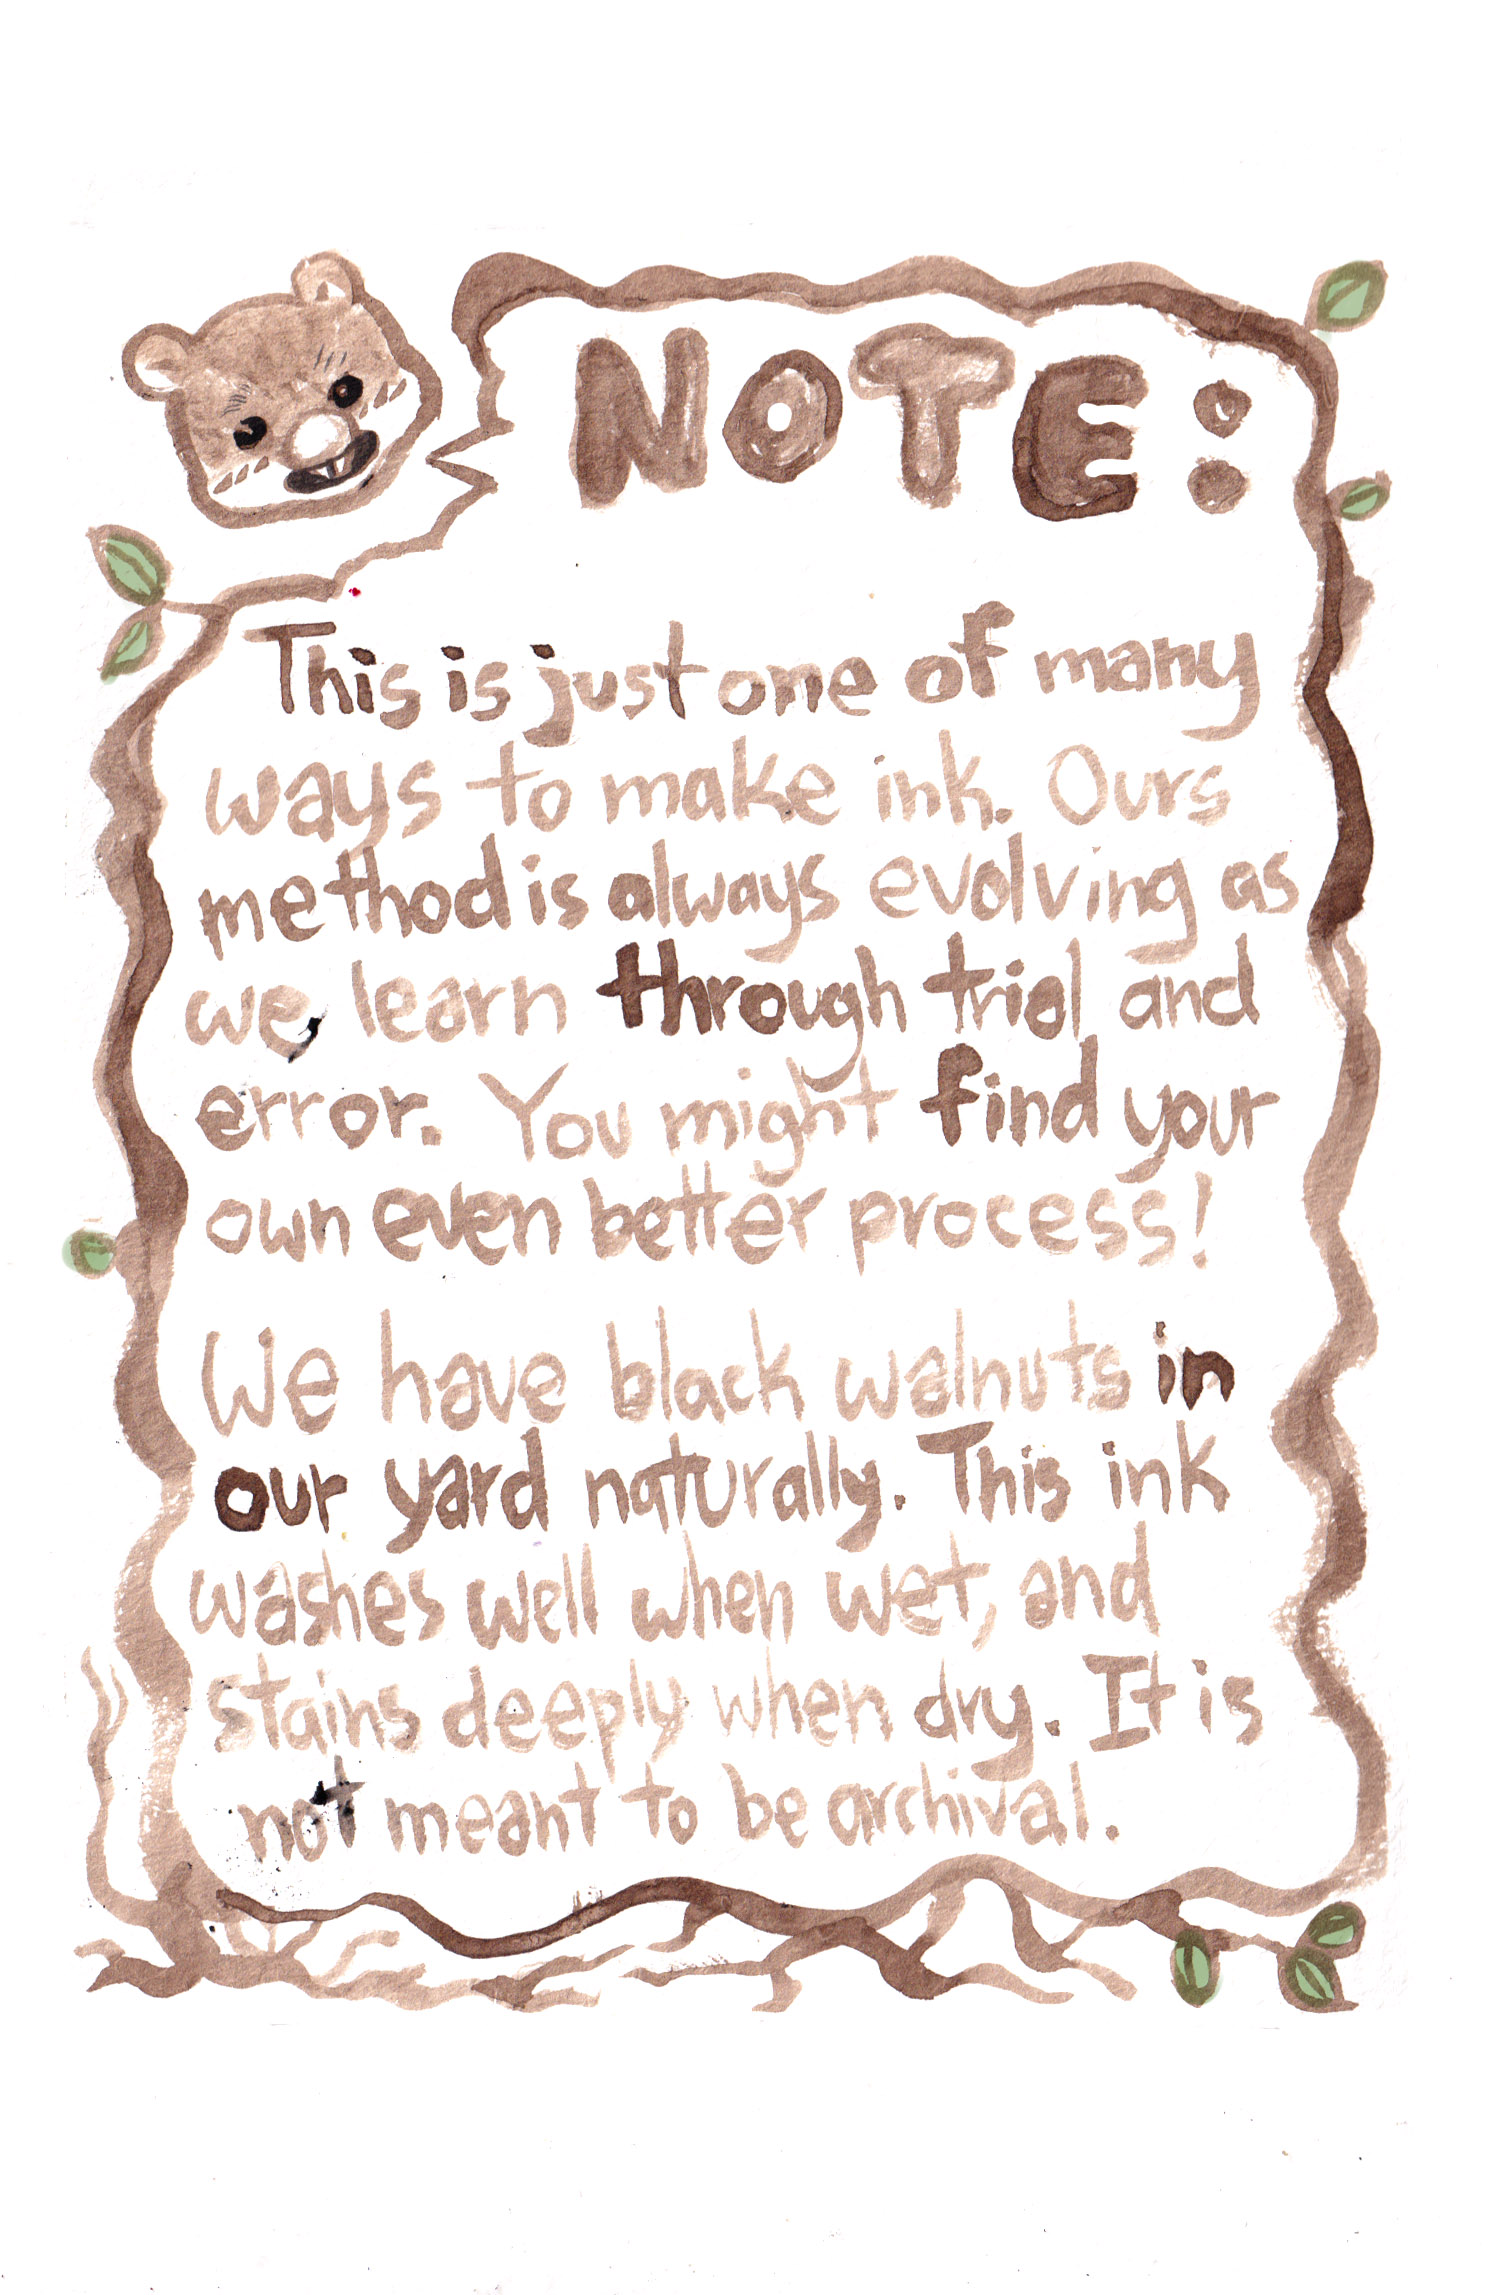 NOTE:
This is just one of many
ways to make ink. Ours
method is always evolving as
we learn through trial and
error. You might find your
own even better process!
We have black walnuts in
our yard naturally. This ink
washes well when wet, and
stains deeply when dry. It is
not meant to be archival.